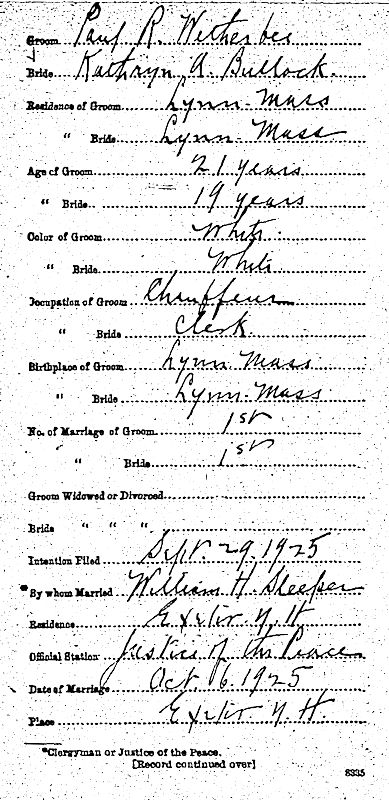 Groom Paul R. Wetherbee
Bride Kathryn A. Bullock.
Residence of Groom Lynn Mass
" Bride Lynn Mass
Age of Groom 21 years
" Bride 19 years
Color of Groom White
" Bride White
Occupation of Groom Chauffeur
" Bride Clerk
Birthplace of Groom Lynn Mass
" Bride Lynn Mass
No. of Marriage of Groom 1st
" Bride 1st
Groom Widowed or Divorced
Bride " " "
Intention Filed Sept. 29, 1925
*By whom Married William H. Sleeper
Residence Exeter N. H.
Official Station Justice of the Peace
Date of Marriage Oct 6. 1925
Place Exeter N. H.
*Clergyman or Justice of the Peace.
[Record continued over]
8335